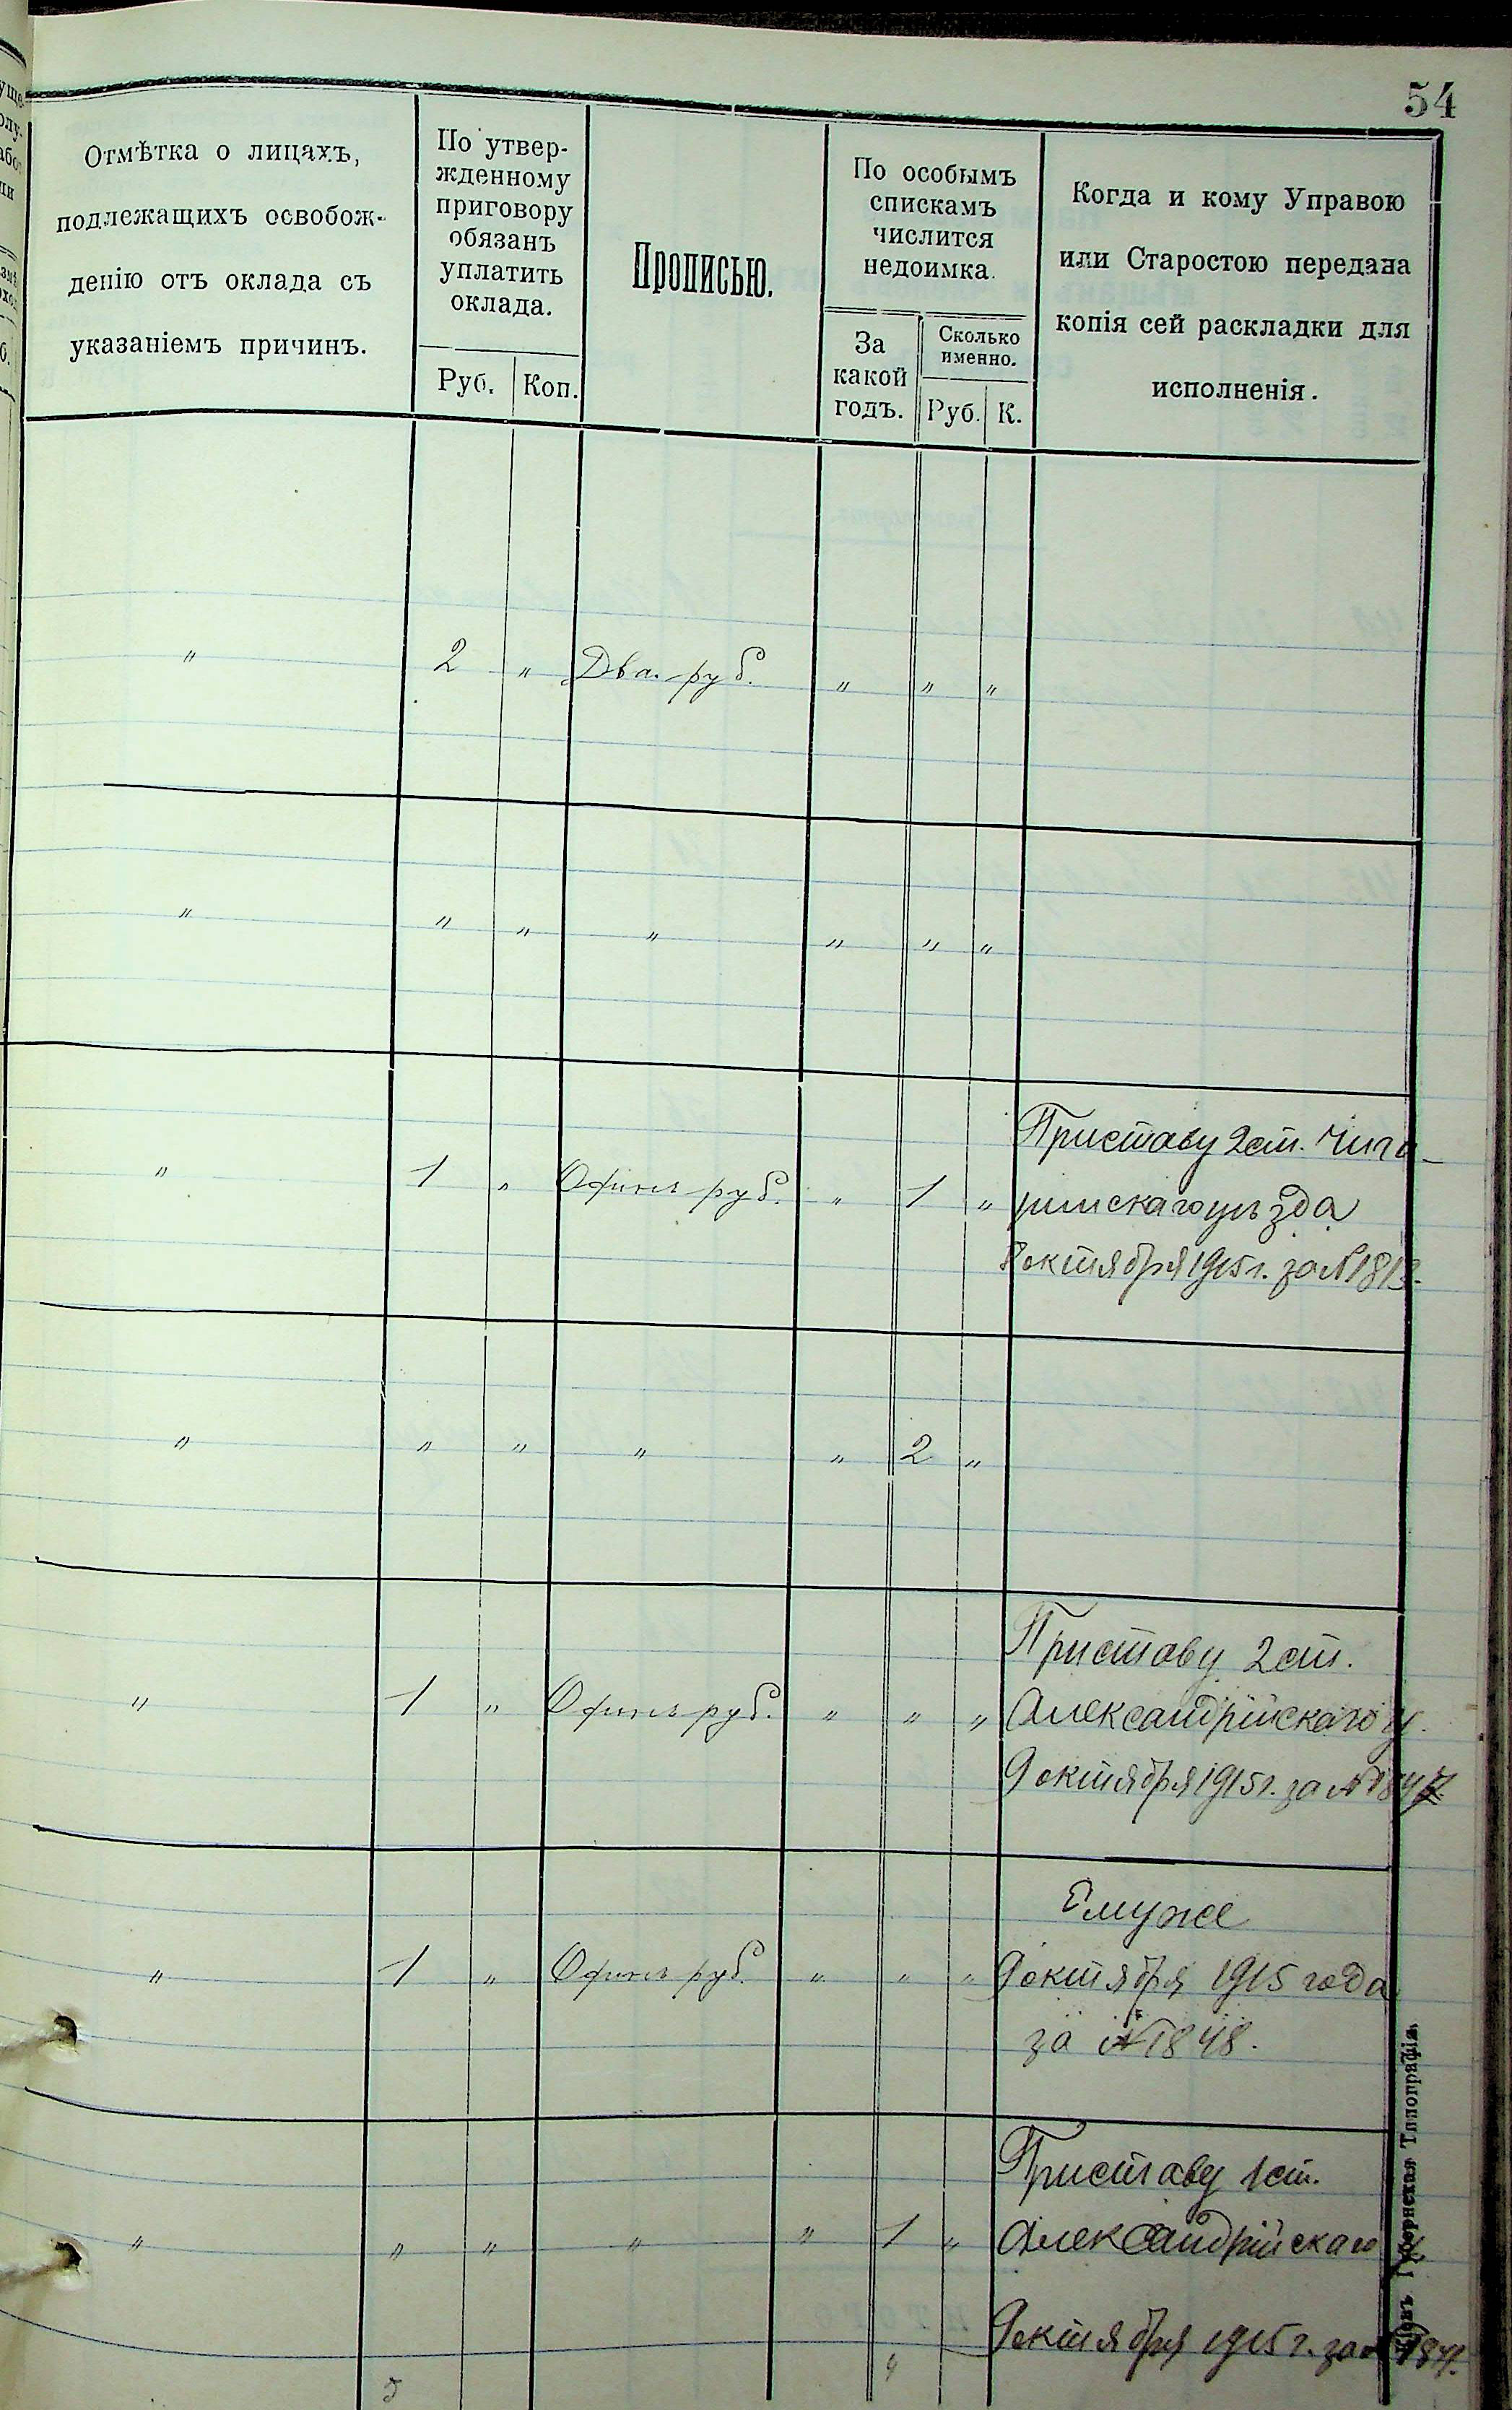 54
Отмѣтка о лицахъ,
подлежащихъ освобож-
денію отъ оклада съ
указаніемъ причинъ.
По утвер-
жденному
приговору
обязанъ
уплатить
оклада.
Руб. Коп.
Прописью.
По особымъ
спискамъ
числится
недоимка.
За
какой
годъ.
Сколько
именно.
Руб. К.
Когда и кому Управою
или Старостою передана
копія сей раскладки для
исполненія.
" 2 " Два руб. " " "
" " " " " " "
" 1 " Одинъ руб. " 1 "
Приставу 2 ст. Чиги-
ринскаго уѣзда
8 октября 1915 г. за №1813.
" " " " " 2 "
" 1 " Одинъ руб. " " "
Приставу 2 ст.
Александрійскаго у.
9 октября 1915 г. за №1847
" 1 " Одинъ руб. " " "
Ему же
9 октября 1915 года
за №1848.
" " " " " 1 "
Приставу 1 ст.
Александрійскаго
9 октября 1915 г. за
5 4
Губернская Типографія.